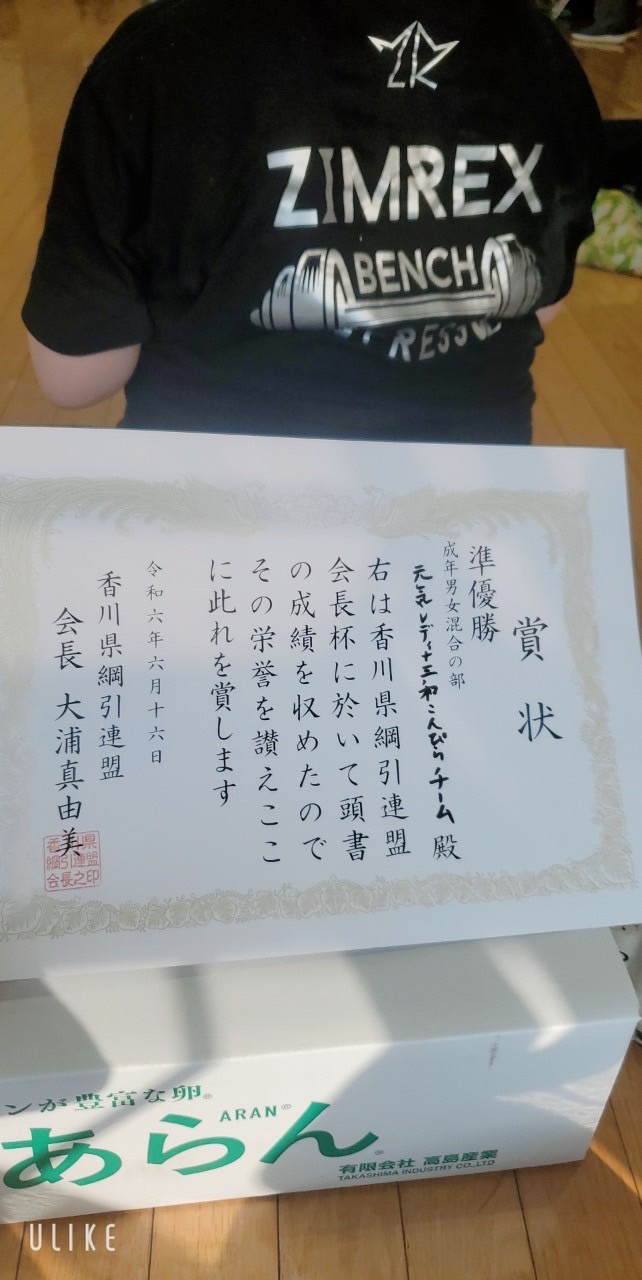 ZR
ZIMREX
BENCH
賞状
準優勝
成年男女混合の部
元気レディ十三.和こんぴらチーム 殿
右は香川県綱引連盟
会長杯に於いて頭書
の成績を収めたので
その栄誉を讃えここ
に此れを賞します
令和六年六月十六日
香川県綱引連盟
会長 大浦真由美
香川県
綱引連盟
会長之印
ンが豊富な卵®
ARAN®
あらん®
有限会社 高島産業
TAKASHIMA INDUSTRY CO.,LTD
ULIKE